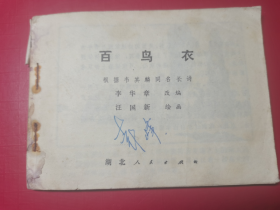 百鸟衣
根据韦其麟同名长诗
李华章 改编
汪国新 绘画
湖北人民出版社